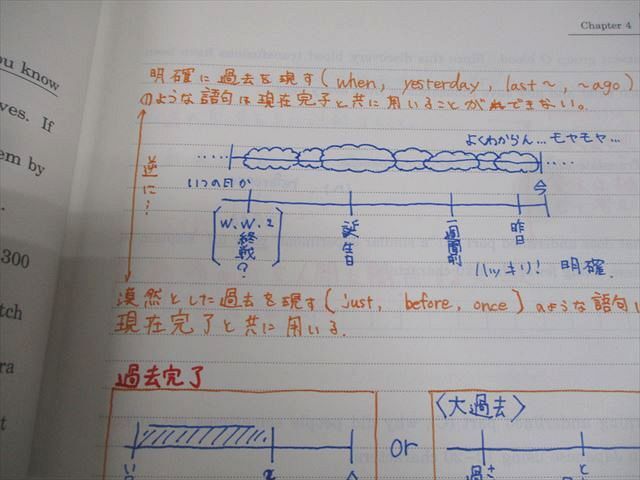 Chapter 4
you know
ves. If
em by
300
tch
ra
t
明確に過去を現す(when, yesterday, last~, ~ago)
のような語句は現在完了と共に用いることができない。
よくわからん...モヤモヤ...
逆に?
いつの日か
今
W.W.2
終戦
?
誕生日
一週間前
昨日
ハッキリ! 明確.
漠然とした過去を現す(just, before, once)のような語句は
現在完了と共に用いる.
過去完了
or
〈大過去〉